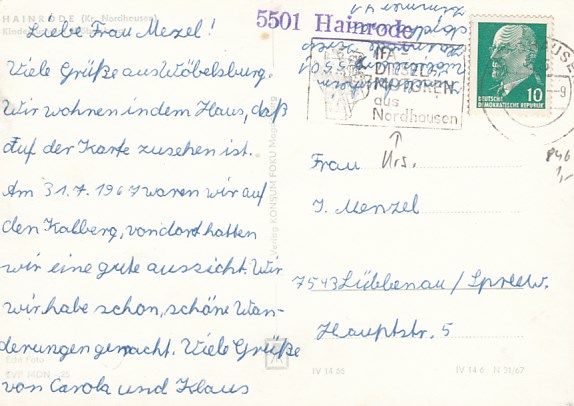 HAINRODE (Kr. Nordhausen)
5501 Hainrode
Liebe Frau Mezel!
Viele Grüße aus Wöbelsburg.
Wir wohnen in dem Haus, daß
auf der Karte zusehen ist.
Am 31.7.1967 waren wir auf
den Kalberg, von dort hatten
wir eine gute aussicht. Wir
wir habe schon, schöne Wan-
derungen gemacht. Viele Grüße
von Carola und Klaus
Echt Foto
Verlag KONSUM FOKU Magdeburg
IFA
DIESEL
MOTOREN
aus
Nordhausen
10
DEUTSCHE
DEMOKRATISCHE REPUBLIK
Frau
J. Menzel
7543 Lübbenau/Spreew.
Hauptstr. 5
IV 14 65
IV 14 6 N 31/67